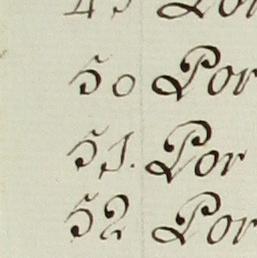 50 Por
51. Por
52 Por